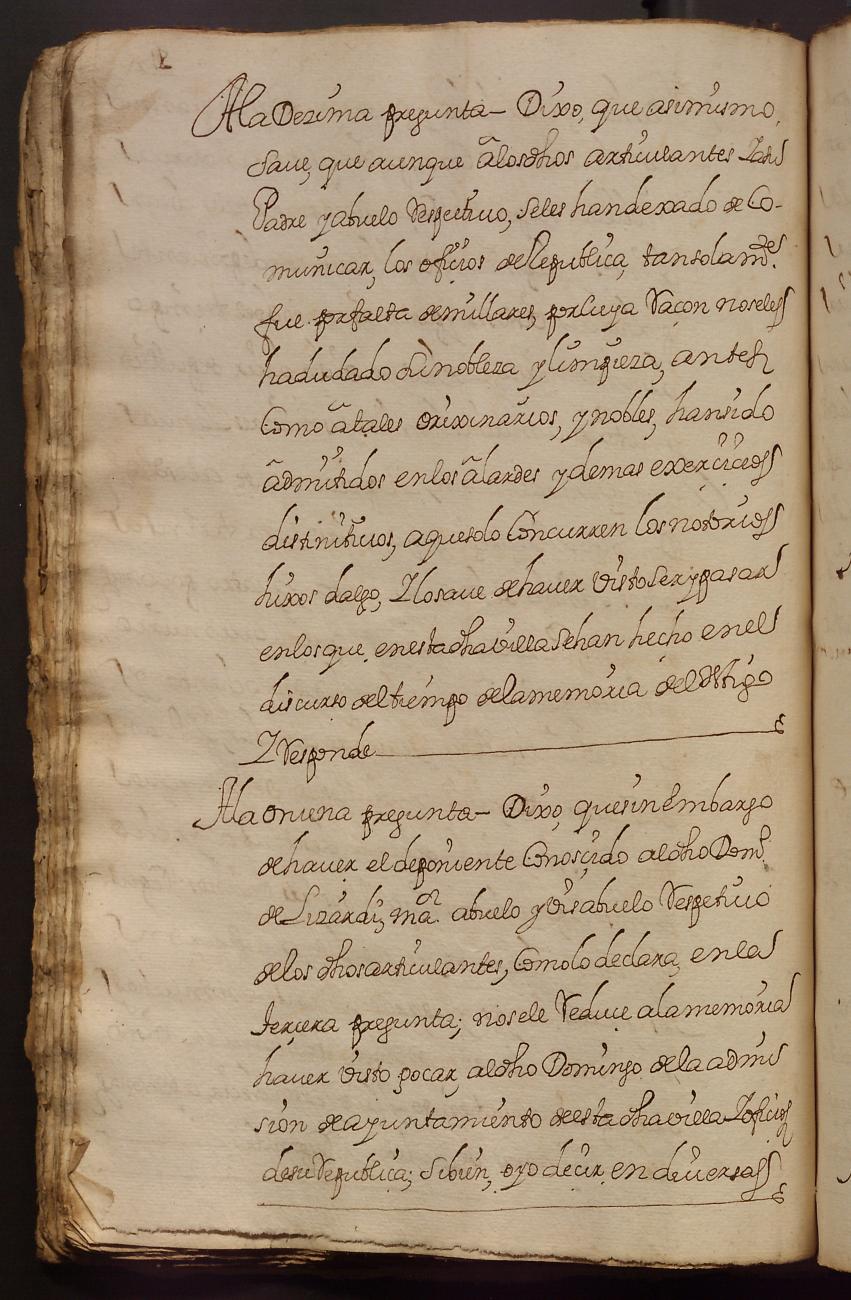 Ala Dezima pregunta – Dixo, que asimismo,
save, que aunque âlos dhos articulantes Y a su
Padre y abuelo Respectivo, seles han dexado de Co-
municar, los oficios de Republica, tan solam.tes
fue por falta de millares, por cuya Raçon noseles
ha dudado su nobleza y limpieza, antes
Como â tales orixinarios, y nobles, han sido
âdmitidos enlos âlardes y demas exercicios
distinitivos, a que solo Concurren los notorios
hixos dalgo, Y lo save de haver visto Ser y pasar
enlosque, en esta dha villa Se han hecho en el
discurso del tiempo de la memoria del testigo
Y Responde
Ala onzena pregunta – Dixo, que sin embargo
de haver el deponiente Conoscido al dho Dom.o
de Lizardi, m.or abuelo y visabuelo Respetivo
de los dhos articulantes, Como lo declara, en la
tercera pregunta; nosele Reduce ala memoria
haver visto goçar, al dho Domingo de la admi
sion de ayuntamiento de esta dha villa Y oficios
de su Republica; Sibien, oyo decir en diversas